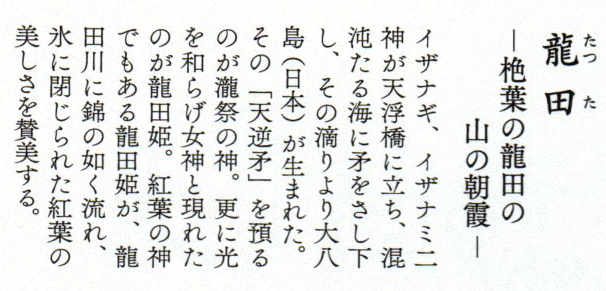 龍田
たつた
―栬葉の龍田の
山の朝霞―
イザナギ、イザナミ二
神が天浮橋に立ち、混
沌たる海に矛をさし下
し、その滴りより大八
島(日本)が生まれた。
その「天逆矛」を預る
のが瀧祭の神。更に光
を和らげ女神と現れた
のが龍田姫。紅葉の神
でもある龍田姫が、龍
田川に錦の如く流れ、
氷に閉じられた紅葉の
美しさを賛美する。